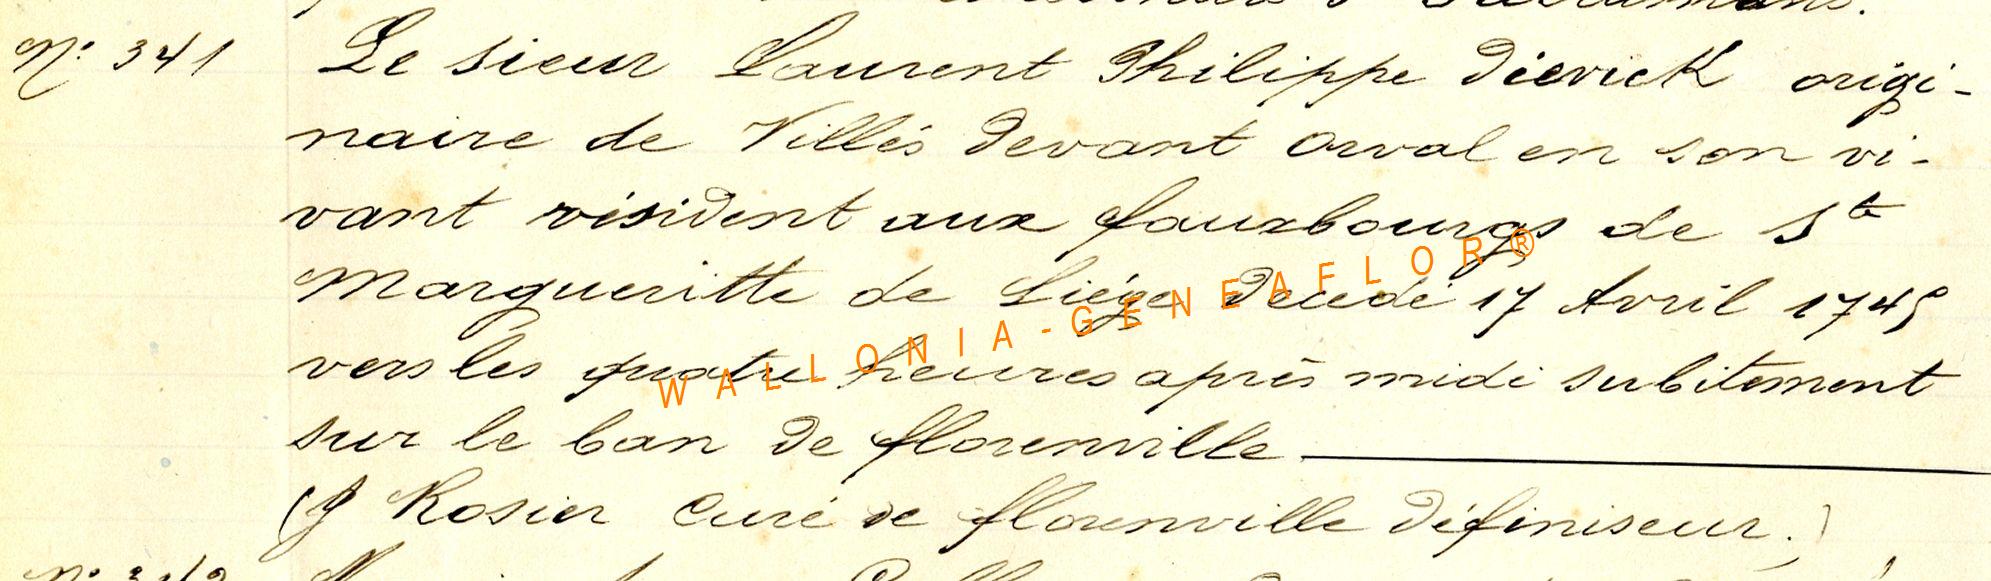 N° 341 Le sieur Laurent Philippe Dierick origi-
naire de Villés devant Orval en son vi-
vant résident aux fauxbourgs de Ste
Margueritte de Liége Decedé 17 Avril 1745
vers les quatre heures après midi subitement
sur le ban de florenville
(J Rosier Curé de florenville définiseur.)
WALLONIA-GENEAFLOR®